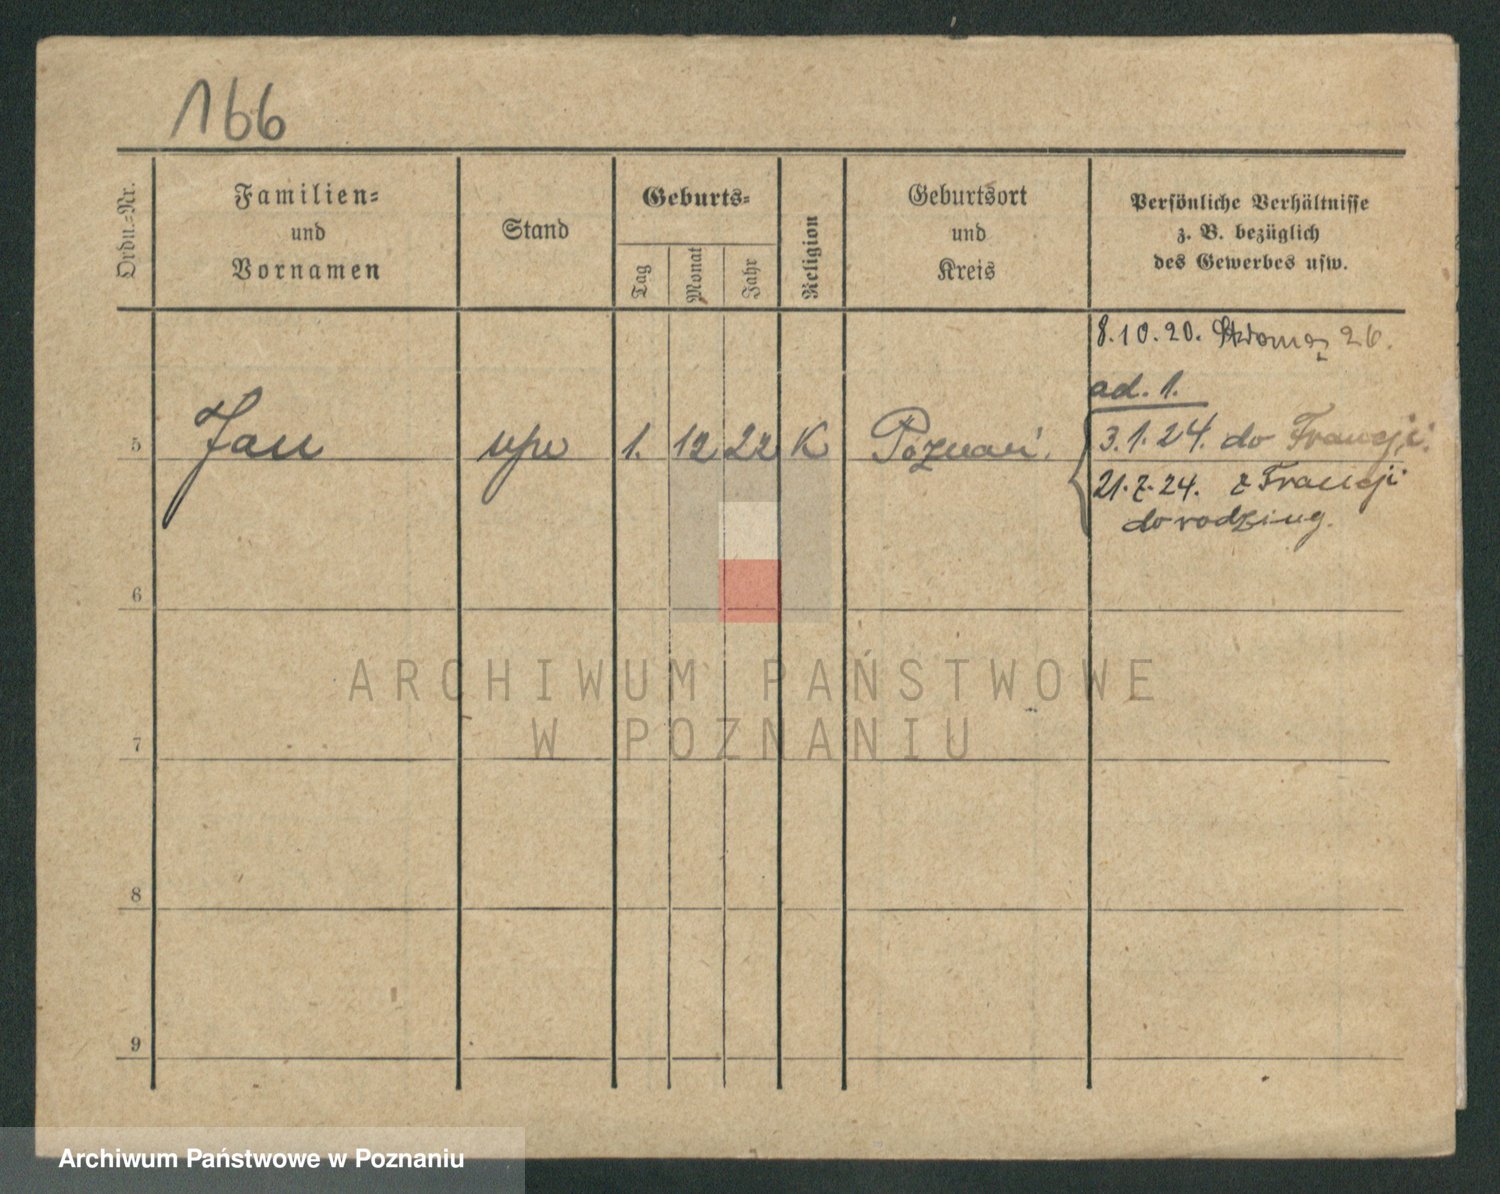 166
Ordn.-Nr.
Familien-
und
Vornamen
Stand
Geburts-
Tag
Monat
Jahr
Religion
Geburtsort
und
Kreis
Persönliche Verhältnisse
z. B. bezüglich
des Gewerbes usw.
8.10.20. 26.
ad. 1.
5 Jan 1. 12 22 K Poznań. 3.1.24. do Francji.
21.7.24. z Francji
do rodziny.
6
7
8
9
ARCHIWUM PAŃSTWOWE
W POZNANIU
Archiwum Państwowe w Poznaniu